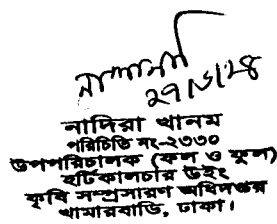 ২৭/৬/২৪
নাদিরা খানম
পরিচিতি নং-২৩৩০
উপপরিচালক (ফল ও ফুল)
হর্টিকালচার উইং
কৃষি সম্প্রসারণ অধিদপ্তর
খামারবাড়ি, ঢাকা।